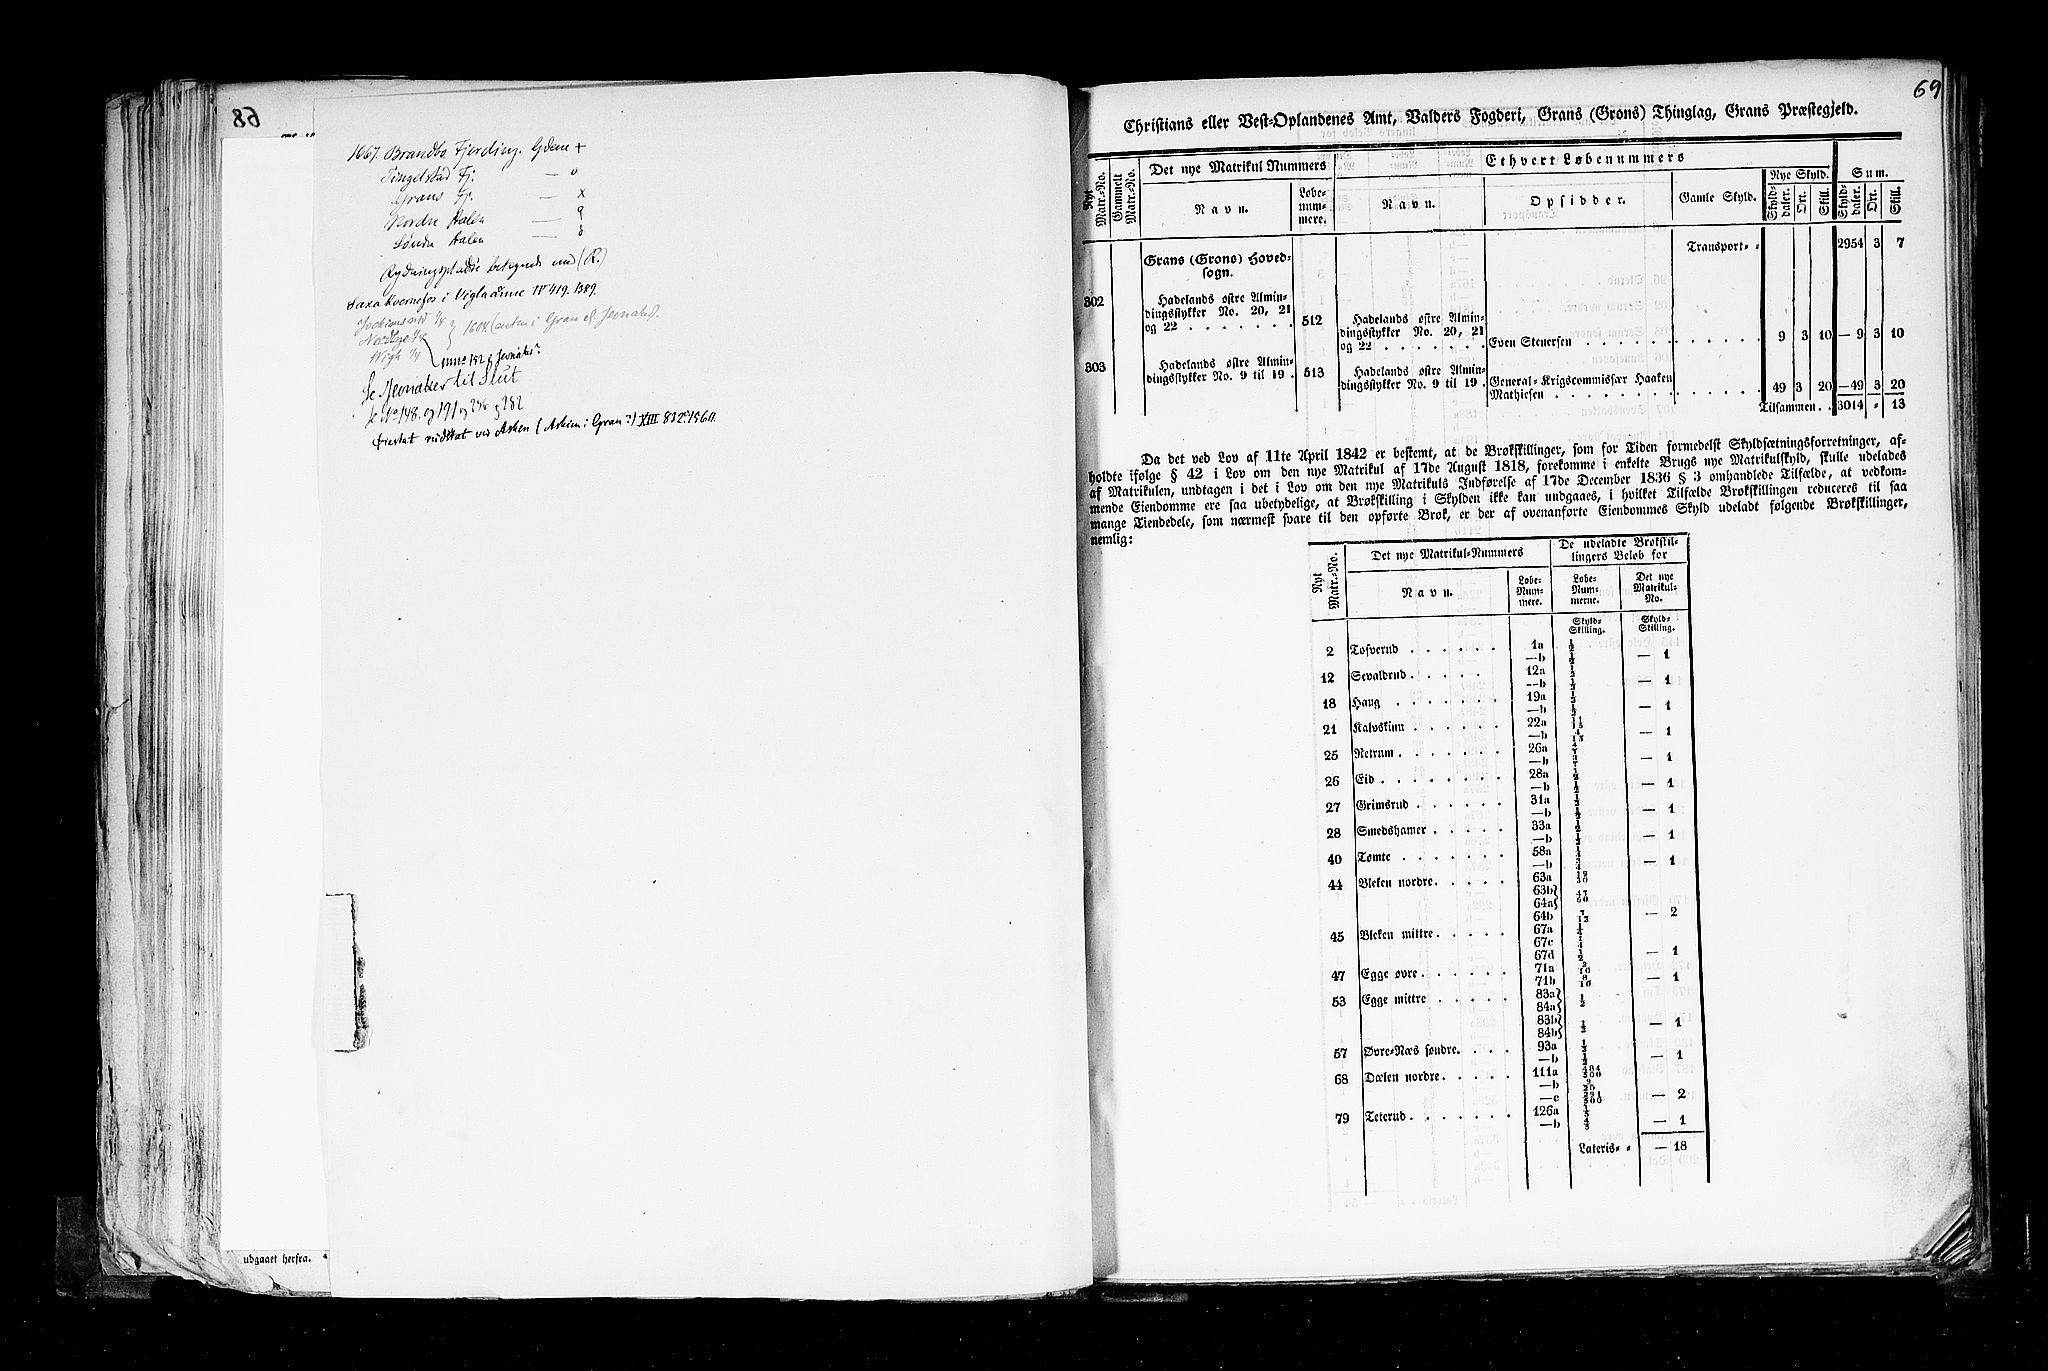 68
1667. Brandbu Fjerding. Gdene +
Tingelstad Fj. — o
Grans Fj. — x
Nordre Aalen — q
Søndre Aalen — ö
Rydningspladse betegnede med (R.)
Saxa kvernefos i Vigla aanne IV 419. 1389.
1604 (enten i Gran el. Jevnaker).
Nordbye 1/4
Wigh 1/4
se Jevnaker til Slut
se No 148. og 191 og 236 og 282
XIII 832. 1560.
udgaaet herfra.
69
Christians eller Vest-Oplandenes Amt, Valders Fogderi, Grans (Grons) Thinglag, Grans Præstegjeld.
Nyt Matr.-No. Gammelt Matr.-No. Det nye Matrikul Nummers Ethvert Løbenummers
Navn. Løbenummere. Navn. Opsidder. Gamle Skyld. Nye Skyld. Sum.
Skylddaler. Ort. Skill. Skylddaler. Ort. Skill.
Transport- - 2954 3 7
Grans (Grons) Hovedsogn.
302 Hadelands østre Almindingsstykker No. 20, 21 og 22 . . . 512 Hadelands østre Almindingsstykker No. 20, 21 og 22 . . . Even Stenersen . . . 9 3 10 — 9 3 10
303 Hadelands østre Almindingsstykker No. 9 til 19 . 513 Hadelands østre Almindingsstykker No. 9 til 19 . General-Krigscommissær Haaken Mathiesen . . . 49 3 20 —49 3 20
Tilsammen . . 3014 - 13
Da det ved Lov af 11te April 1842 er bestemt, at de Brøkskillinger, som for Tiden formedelst Skyldsætningsforretninger, af-
holdte ifølge § 42 i Lov om den nye Matrikul af 17de August 1818, forekomme i enkelte Brugs nye Matrikulskyld, skulle udelades
af Matrikulen, undtagen i det i Lov om den nye Matrikuls Indførelse af 17de December 1836 § 3 omhandlede Tilfælde, at vedkom-
mende Eiendomme ere saa ubetydelige, at Brøkskilling i Skylden ikke kan undgaaes, i hvilket Tilfælde Brøkskillingen reduceres til saa
mange Tiendedele, som nærmest svare til den opførte Brøk, er der af ovenanførte Eiendommes Skyld udeladt følgende Brøkskillinger,
nemlig:
Nyt Matr.-No. Det nye Matrikul-Nummers De udeladte Brøkskillingers Beløb for
Navn. Løbe-Nummere. Løbe-Nummerne. Det nye Matrikul-No.
Skyld-Skilling. Skyld-Skilling.
2 Tosverud . . . 1a 1/2
—b 1/2 — 1
12 Sevaldrud . . . 12a 1/2
—b 1/2 — 1
18 Haug . . . 19a 1/2
—b 1/2 — 1
21 Kalvskinn . . . 22a 11/15
—b 4/15 — 1
25 Retrum . . . 26a 4/7
—b 3/7 — 1
26 Eid . . . 28a 1/2
—b 1/2 — 1
27 Grimsrud . . . 31a 1/2
—b 1/2 — 1
28 Smedshamer . . . 33a 1/2
—b 1/2 — 1
40 Tømte . . . 58a 1/4
—b 3/4 — 1
44 Bleken nordre . . . 63a 19/30
63b
64a 47/60
64b 7/12 — 2
45 Bleken mittre . . . 67a 1/4
67c 1/4
67d 1/2 — 1
47 Egge øvre . . . 71a 2/10
71b 8/10 — 1
53 Egge mittre . . . 83a
84a 1/2
83b
84b 1/2 — 1
57 Øvre-Næs søndre . . . 93a 1/2
—b 1/2 — 1
68 Dælen nordre . . . 111a 484/500
—b
—c — 2
79 Teterud . . . 126a 1/5
—b 4/5 — 1
Lateris- - — 18